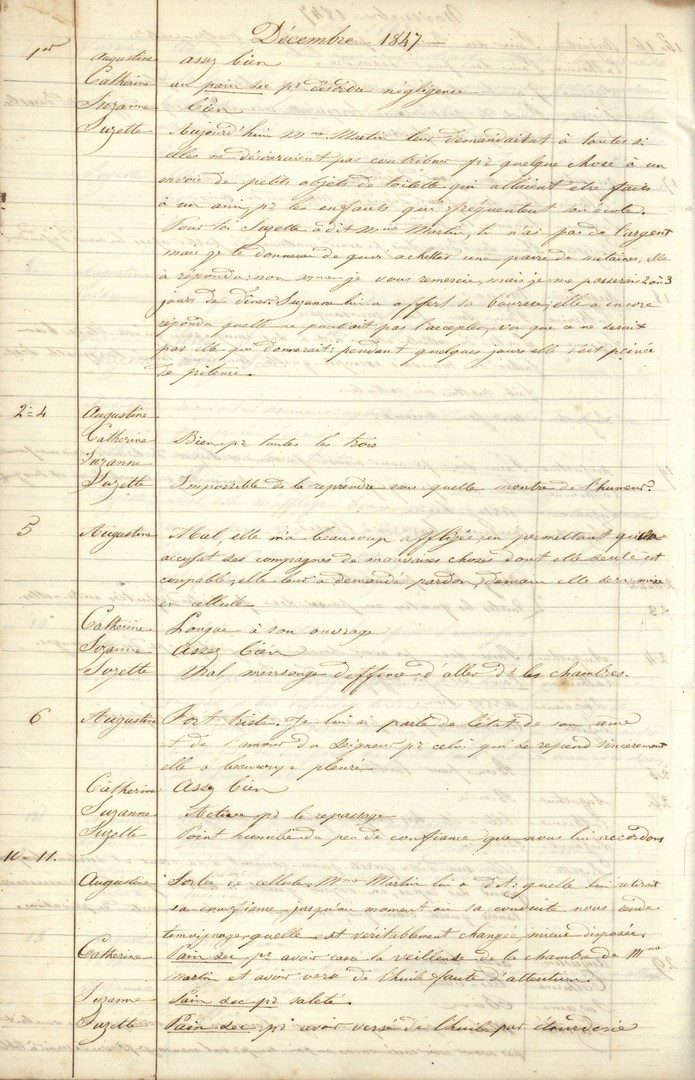 Décembre 1847
1er Augustine assez bien
Catherine au pain sec pr désordre négligence
Suzanne bien
Suzette Aujourd'hui Mme Martin leur demandaitat à toutes si
elles ne désireraient pas contribuer pr quelque chose à un
envoi de petits objets de toilette qui allaient etre faits
à un ami pr les enfants qui fréquentent son école.
Pour toi Suzette a dit Mme Martin, tu n'as pas de l'argent
mais je te donnerai de quoi acheter une paire de mitaines, elle
a répondu: non mme je vous remercie, mais je me passerai 2 ou 3
jours de diner. Suzanne lui a offert sa bourse, elle a encore
répondu quelle ne pouvait pas l'accepter, vu que ce ne serait
pas elle qui donnerait; pendant quelques jours elle s'est privée
de pitence.
2=4 Augustine
Catherine Bien pr toutes les trois
Suzanne
Suzette Impossible de la reprendre sans quelle montre de l'humeur.
5 Augustine Mal, elle m'a beaucoup affligée, en permettant qu'on
accusat ses compagnes de mauvaises choses dont elle seule est
coupable, elle leur a demandé pardon, demain elle sera mise
en cellule
Catherine Longue à son ouvrage
Suzanne assez bien
Suzette Mal, mensonge deffence d'aller ds les chambres.
6 Augustine Fort triste. Je lui ai parlé de l'état de son ame
et de l'amour du Seigneur pr celui qui se repend sincerement
elle a beaucoup pleuré
Catherine Assez bien
Suzanne Active pr le repassage
Suzette Point humiliée du peu de confiance que nous lui accordons
10=11. Augustine Sortie de cellule. Mme Martin lui a dit: quelle lui retirait
sa confiance, jusqu'au moment où sa conduite nous
temoignage quelle est véritablement changée, mieux disposée,
Catherine Pain sec pr avoir cassé la veilleuse de la chambre de Mme
Martin et avoir versé de l'huile faute d'attention.
Suzanne Pain sec pr saleté.
Suzette Pain sec pr avoir versé de l'huile par étourderie